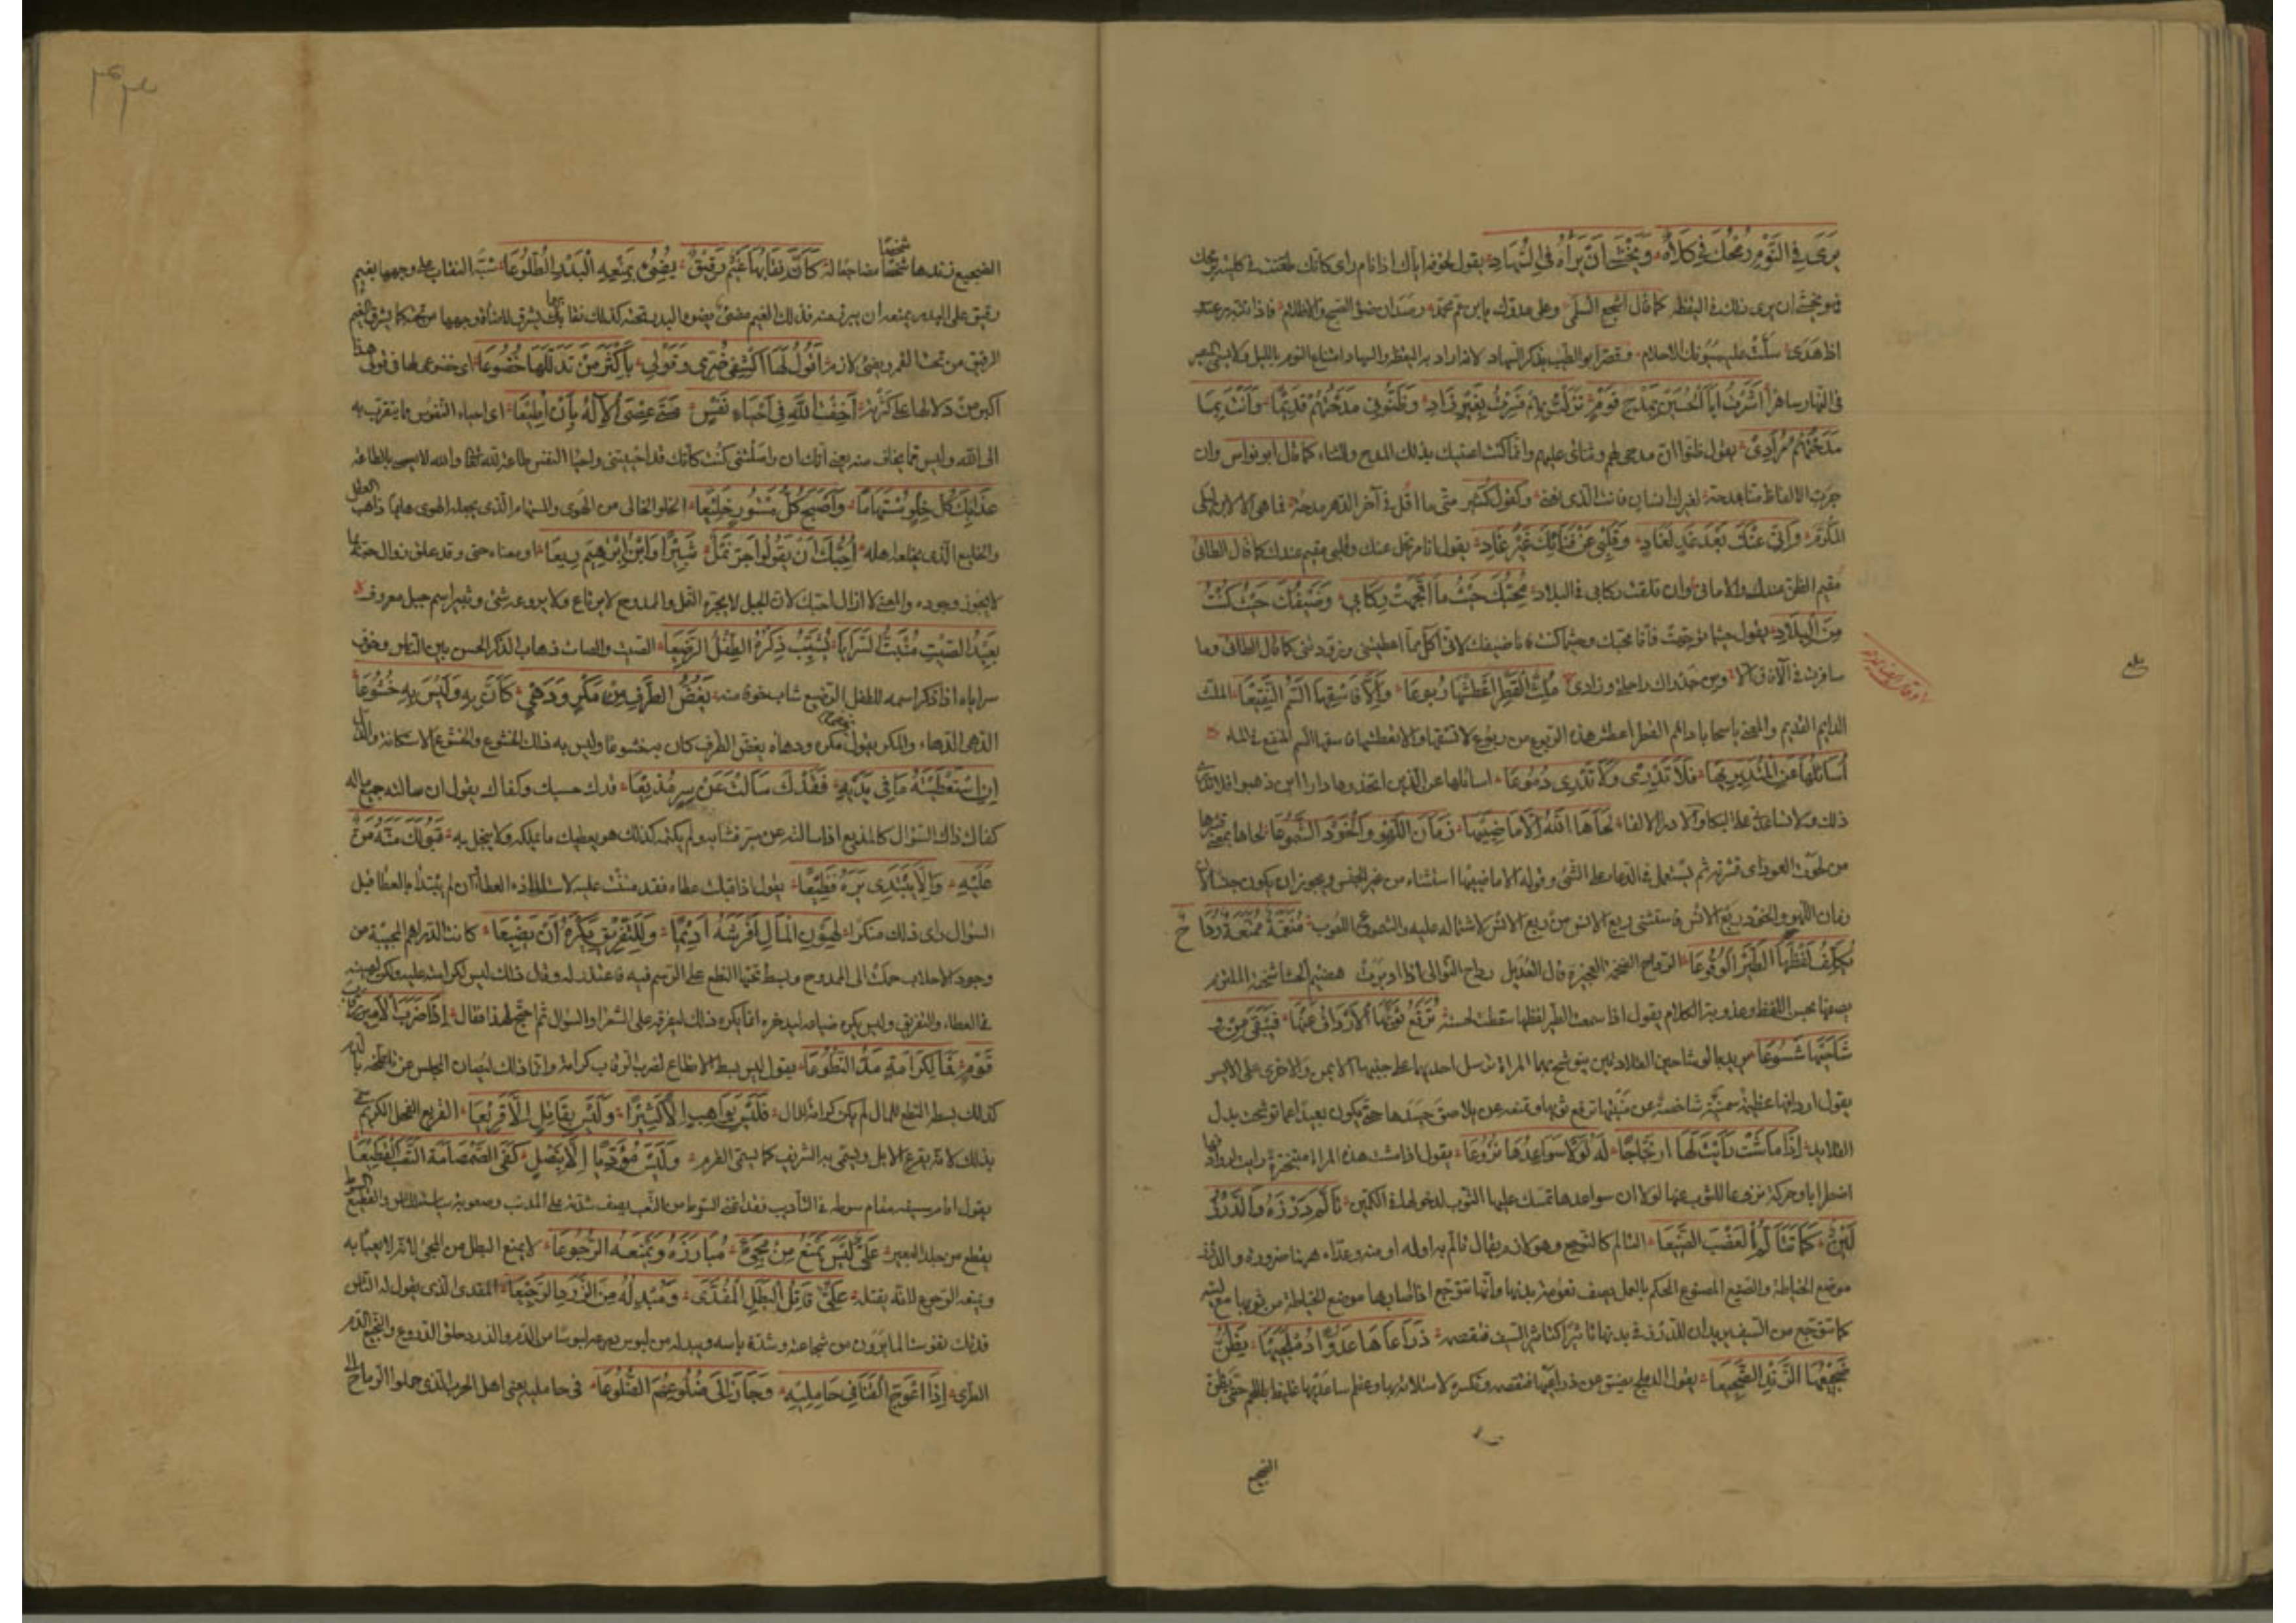 يَرَى في النَّوْمِ رُمْحَكَ في كُلَاهُ وَيَخْشَى أنْ يَرَاهُ في السُّهَادِ يقول لخوفه اياك اذا نام رأى كأنك طعنت في كليته برمحك
فهو يخشى ان يرى ذلك في اليقظة كما قال اشجع السلمي وعلى عدوك يا ابن عم محمد رصدان ضوء الصبح والاظلام فاذا تنبه رعته
اذا هدى سلّت عليه سيوفك الاحلام وقصّر ابو الطيب بذكر السهاد لانه اراد به اليقظة والسهاد امتناع النوم بالليل ولا يسمى المتصرف
في النهار ساهرا أَشَرْتُ أبا الحُسَيْنِ بمَدْحِ قَوْمٍ نَزَلْتُ بهِمْ فَسِرْتُ بغَيْرِ زَادِ وَظَنّوني مَدَحْتُهُمُ قَدِيمًا وَأنْتَ بمَا
مَدَحْتُهُمُ مُرَادي يقول ظنوا ان مدحي لهم وثنائي عليهم وانما كنت اعنيك بذلك المدح والثناء كما قال ابو نواس وان
جرت الالفاظ منا بمدحة لغيرك انسانا فانت الذي نعني وكقول كثير متى ما اقل في آخر الدهر مدحة فما هي الا لابن ليلى
المكرم وَإنّي عَنْكَ بَعْدَ غَدٍ لَغَادٍ وَقَلْبي عَنْ فِنَائِكَ غَيرُ غَادِ يقول انا مرتحل عنك وقلبي مقيم عندك كما قال الطائي
مقيم الظن عندك والاماني وان قلقت ركابي في البلاد مُحِبُّكَ حَيْثُ ما اتّجَهَتْ رِكَابي وَضَيْفُكَ حَيْثُ كُنْتُ
مِنَ البِلَادِ يقول حيثما توجهت فأنا محبك وحيثما كنت فانا ضيفك لاني آكل مما اعطيتني وزودتني كما قال الطائي وما
سافرت في الآفاق الا ومن جدواك راحلتي وزادي مُلِثَّ القَطْرِ أَعْطِشْها رُبُوعًا وَإلّا فَاسْقِهَا السَّمَّ النَّقِيعَا الملث
الدايم المقيم والمعنى يا سحابا دائم القطر اعطش هذه الربوع من ربوع لا تسقها وان لم تعطشها فاسقها السم المنقع في الماء
أُسَائِلُهَا عَنِ المُتَدَيِّرِيها فَلَا تَدْري وَلَا تُذْري دُمُوعَا اسائلها عن الذين اتخذوها دارا اين ذهبوا فلا تدري
ذلك ولا تساعدني على البكاء لَحَاهَا اللّهُ إلّا مَاضِيَيْهَا زَمَانَ اللّهْوِ وَالخَوْدَ الشَّمُوعَا لحاها بمعنى قشرها
من لحوت العود اي قشرته ثم يستعمل في الدعاء على الشيء وقوله الا ماضييها استثناء من غير الجنس ويجوز ان يكون
زمان اللهو والخود ربع الانس فاستثنى ربع الانس من ربع الانس لاشتماله عليه والشموع اللعوب مُنَعَّمَةٌ مُمَنَّعَةٌ رَدَاحٌ
يُكَلِّفُ لَفْظُها الطّيرَ الوُقُوعَا الرداح الضخمة العجيزة قال العديل رداح التوالي اذا ادبرت هضيم الحشا شختة الملتزم
يصفها بحسن اللفظ وعذوبة الكلام يقول اذا سمعت الطير لفظها سقطت لحسنه تُرَفِّعُ ثَوْبَهَا الأرْدَافُ عَنْهَا فَيَبْقَى مِنْ وِشَـ
شَاحَيْها شَسُوعَا يريد بالوشاحين القلادتين يتوشح بهما المراة ترسل احديهما على جنبها الايمن والاخرى على الايسر
يقول اردافها عظيمة سمينة شاخصة عن بدنها ترفع ثوبها وتمنعه عن يلاصق جسدها حتى يكون بعيدا عما توشحت به من
القلايد إذَا مَاسَتْ رَأَيْتَ لَهَا ارْتِجَاجًا لَهُ لَوْلَا سَوَاعِدُهَا نَزُوعَا يقول اذا مشت هذه المراة متبخترة رايت لردافها
اضطرابا وحركة نزوعا للثوب عنها لولا ان سواعدها تمسك عليها الثوب لدخولها في الكمين تَأَلَّمُ دَرْزَهُ وَالدَّرْزُ
لَيْنٌ كَمَا تَتَأَلَّمُ العَضْبَ الصَّنِيعَا التالم كالتوجع وهو لازم يقال تالم به او له او منه وعداه ههنا ضرورة والدرز
موضع الخياطة والصنيع المصنوع المحكم بالعمل يصف نعومة بدنها وانها تتوجع اذا اصابها موضع الخياطة من ثوبها مع لينه
كما تتوجع من السيف يريد ان للدرز في بدنها تاثيرا كتاثير السيف ذِرَاعَاهَا عَدُوَّا دُمْلُجَيْهَا يَظُنُّ
ضَجِيعُهَا الزَّنْدَ الضَّجِيعَا يقول الدملج يضيق عن ذراعيها فتقصمه وتكسره لامتلائه بهما وعظم ساعديها غليظا باللحم حتى يظن
الضجيع
الضجيع زندها شخصا مضاجعا له كَأَنَّ نِقَابَهَا غَيْمٌ رَقِيقٌ يُضِيءُ بِمَنْعِهِ البَدْرَ الطُّلُوعَا شبه النقاب على وجهها بغيم
رقيق على البدر يمنعه ان يبرق منه فذلك الغيم مضيء بضوء البدر تحته كذلك نقابها يشرق لتلألؤ وجهها من تحته كما يشرق الغيم
الرقيق من تحته القمر ويضيء لازم أَقُولُ لَهَا اكْشِفي ضُرّي وَقَوْلي بِأَكْثَرَ مِنْ تَدَلُّلِهَا خُضُوعَا اي خضوعي لها في قولي هذا
اكثر من دلالها على كثرته أَخِفْتِ اللّهَ في إحْيَاءِ نَفْسٍ مَتَى عُصِيَ الإلَهُ بِأَنْ أُطِيعَا اي احياء النفوس ما يتقرب به
الى الله وليس مما يخاف منه يعني انك ان واصلتني كنت كأنك قد احييتني واحيا النفس طاعة لله والله لا يعصى بالطاعة
غَدَا بِكِ كُلُّ خِلْوٍ مُسْتَهَامًا وَأَصْبَحَ كُلُّ مَسْتُورٍ خَلِيعَا الخلو الخالي من الهوى والمستهام الذي يجعله الهوى هايما ذاهب العقل
والخليع الذي يخلعه اهله أُحِبُّكِ أَنْ يَقُولُوا جَرَّ نَمْلٌ ثَبِيرًا وَابْنُ إبْرَاهِيمَ رِيعَا او بمعنى حتى وقد علق زوال حبه بما
لا يجوز وجوده والمعنى لا ازال احبك لان الجبل لا يجره النمل والممدوح لا يرتاع ولا يروعه شيء وثبير اسم جبل معروف
بَعِيدُ الصِّيتِ مُنْبَثُّ السَّرَايَا يُشَيِّبُ ذِكْرُهُ الطِّفْلَ الرَّضِيعَا الصيت والصات ذهاب الذكر الحسن بين الناس وخوف
سراياه اذا ذكر اسمه للطفل الرضيع شاب خوفا منه يَغُضُّ الطَّرْفَ مِنْ مَكْرٍ وَدَهْيٍ كَأَنَّ بِهِ وَلَيْسَ بِهِ خُشُوعَا
الدهي الدهاء والمكر يقول مكره ودهاه يغض الطرف كان به خشوعا وليس به ذلك الخشوع والخشوع الاستكانة والذل
إنِ اسْتَعْطَيْتَهُ مَا في يَدَيْهِ فَقَدْكَ سَأَلْتَ عَنْ سِرٍّ مُذِيعَا قدك حسبك وكفاك يقول ان سالته جميع ماله
كفاك ذاك السؤال كالمذيع اذا سالته عن سر فشا به ولم يكتمه كذلك هو يعطيك ما يملكه ولا يبخل به قَبُولُكَ مَنَّهُ مَنٌّ
عَلَيْهِ وَإلّا يَبْتَدِئْ يَرَهُ فَظِيعَا يقول اذا قبلت عطاءه فقد مننت عليه لاستلذاذه العطاء وان لم يبتدأ بالعطا قبل
السؤال راى ذلك منكرا لِهُونِ المَالِ أَفْرَشَهُ أَدِيمًا وَلِلتَّفْرِيقِ يَكْرَهُ أَنْ يَضِيعَا كانت الدراهم المجبية من
وجوه الاحلاب حملت الى الممدوح وبسط تحتها النطع على الرسم فيه فاعتذر له وقال ذلك ليس لكرامته عليه ولكن لهونه
في العطاء والتفريق وليس يكره ضياعه ليدخره انما يكره ذلك ليفرقه على الشعراء والسؤال ثم احتج لهذا فقال إذَا ضَرَبَ الأمِيرُ رِقَابَ
قَوْمٍ فَمَا لِكَرَامَةٍ مَدَّ النُّطُوعَا يقول ليس بسط الانطاع لضرب الرقاب كرامة وانما ذلك ليصان المجلس عن تلطخه بالدم
كذلك بسط النطع للمال لم يكن كرامة للمال فَلَيْسَ بِوَاهِبٍ إلّا كَثِيرًا وَلَيْسَ بِقَاتِلٍ إلّا قَرِيعَا القريع الفحل الكريم سمي
بذلك لانه يقرع الابل ويسمى به الشريف كما يسمى القرم وَلَيْسَ مُؤَدِّبًا إلّا بِنَصْلٍ كَفَى الصَّمْصَامَةُ التَّعَبَ القَطِيعَا
يقول اقام سيفه مقام سوطه في التأديب فقد اغنى السوط من التعب يصف شدته على المذنب وصعوبة سياسته للناس والقطيع السوط
يقطع من جلد البعير عَلِيٌّ لَيْسَ يَمْنَعُ مِنْ مَجِيءٍ مُبَارِزَهُ وَيَمْنَعُهُ الرُّجُوعَا لا يمنع البطل من المجيء لانه لا يعبأ به
ويمنعه الرجوع لانه يقتله عَلِيٌّ قَاتِلُ البَطَلِ المُفَدَّى وَمُبْدِلُهُ مِنَ الزَّرَدِ النَّجِيعَا المفدى الذي يقول له الناس
فدتك نفوسنا لما يرون من شجاعته وشدة باسه ويبدله من لبوس درعه لبوسا من الدم والزرد حلق الدروع والنجيع الدم
الطري إذَا اعْوَجَّ القَنَا في حَامِلِيهِ وَجَازَ إلَى ضُلُوعِهِمِ الضُّلُوعَا في حامليه يعني اهل الحرب الذي حملوا الرماح